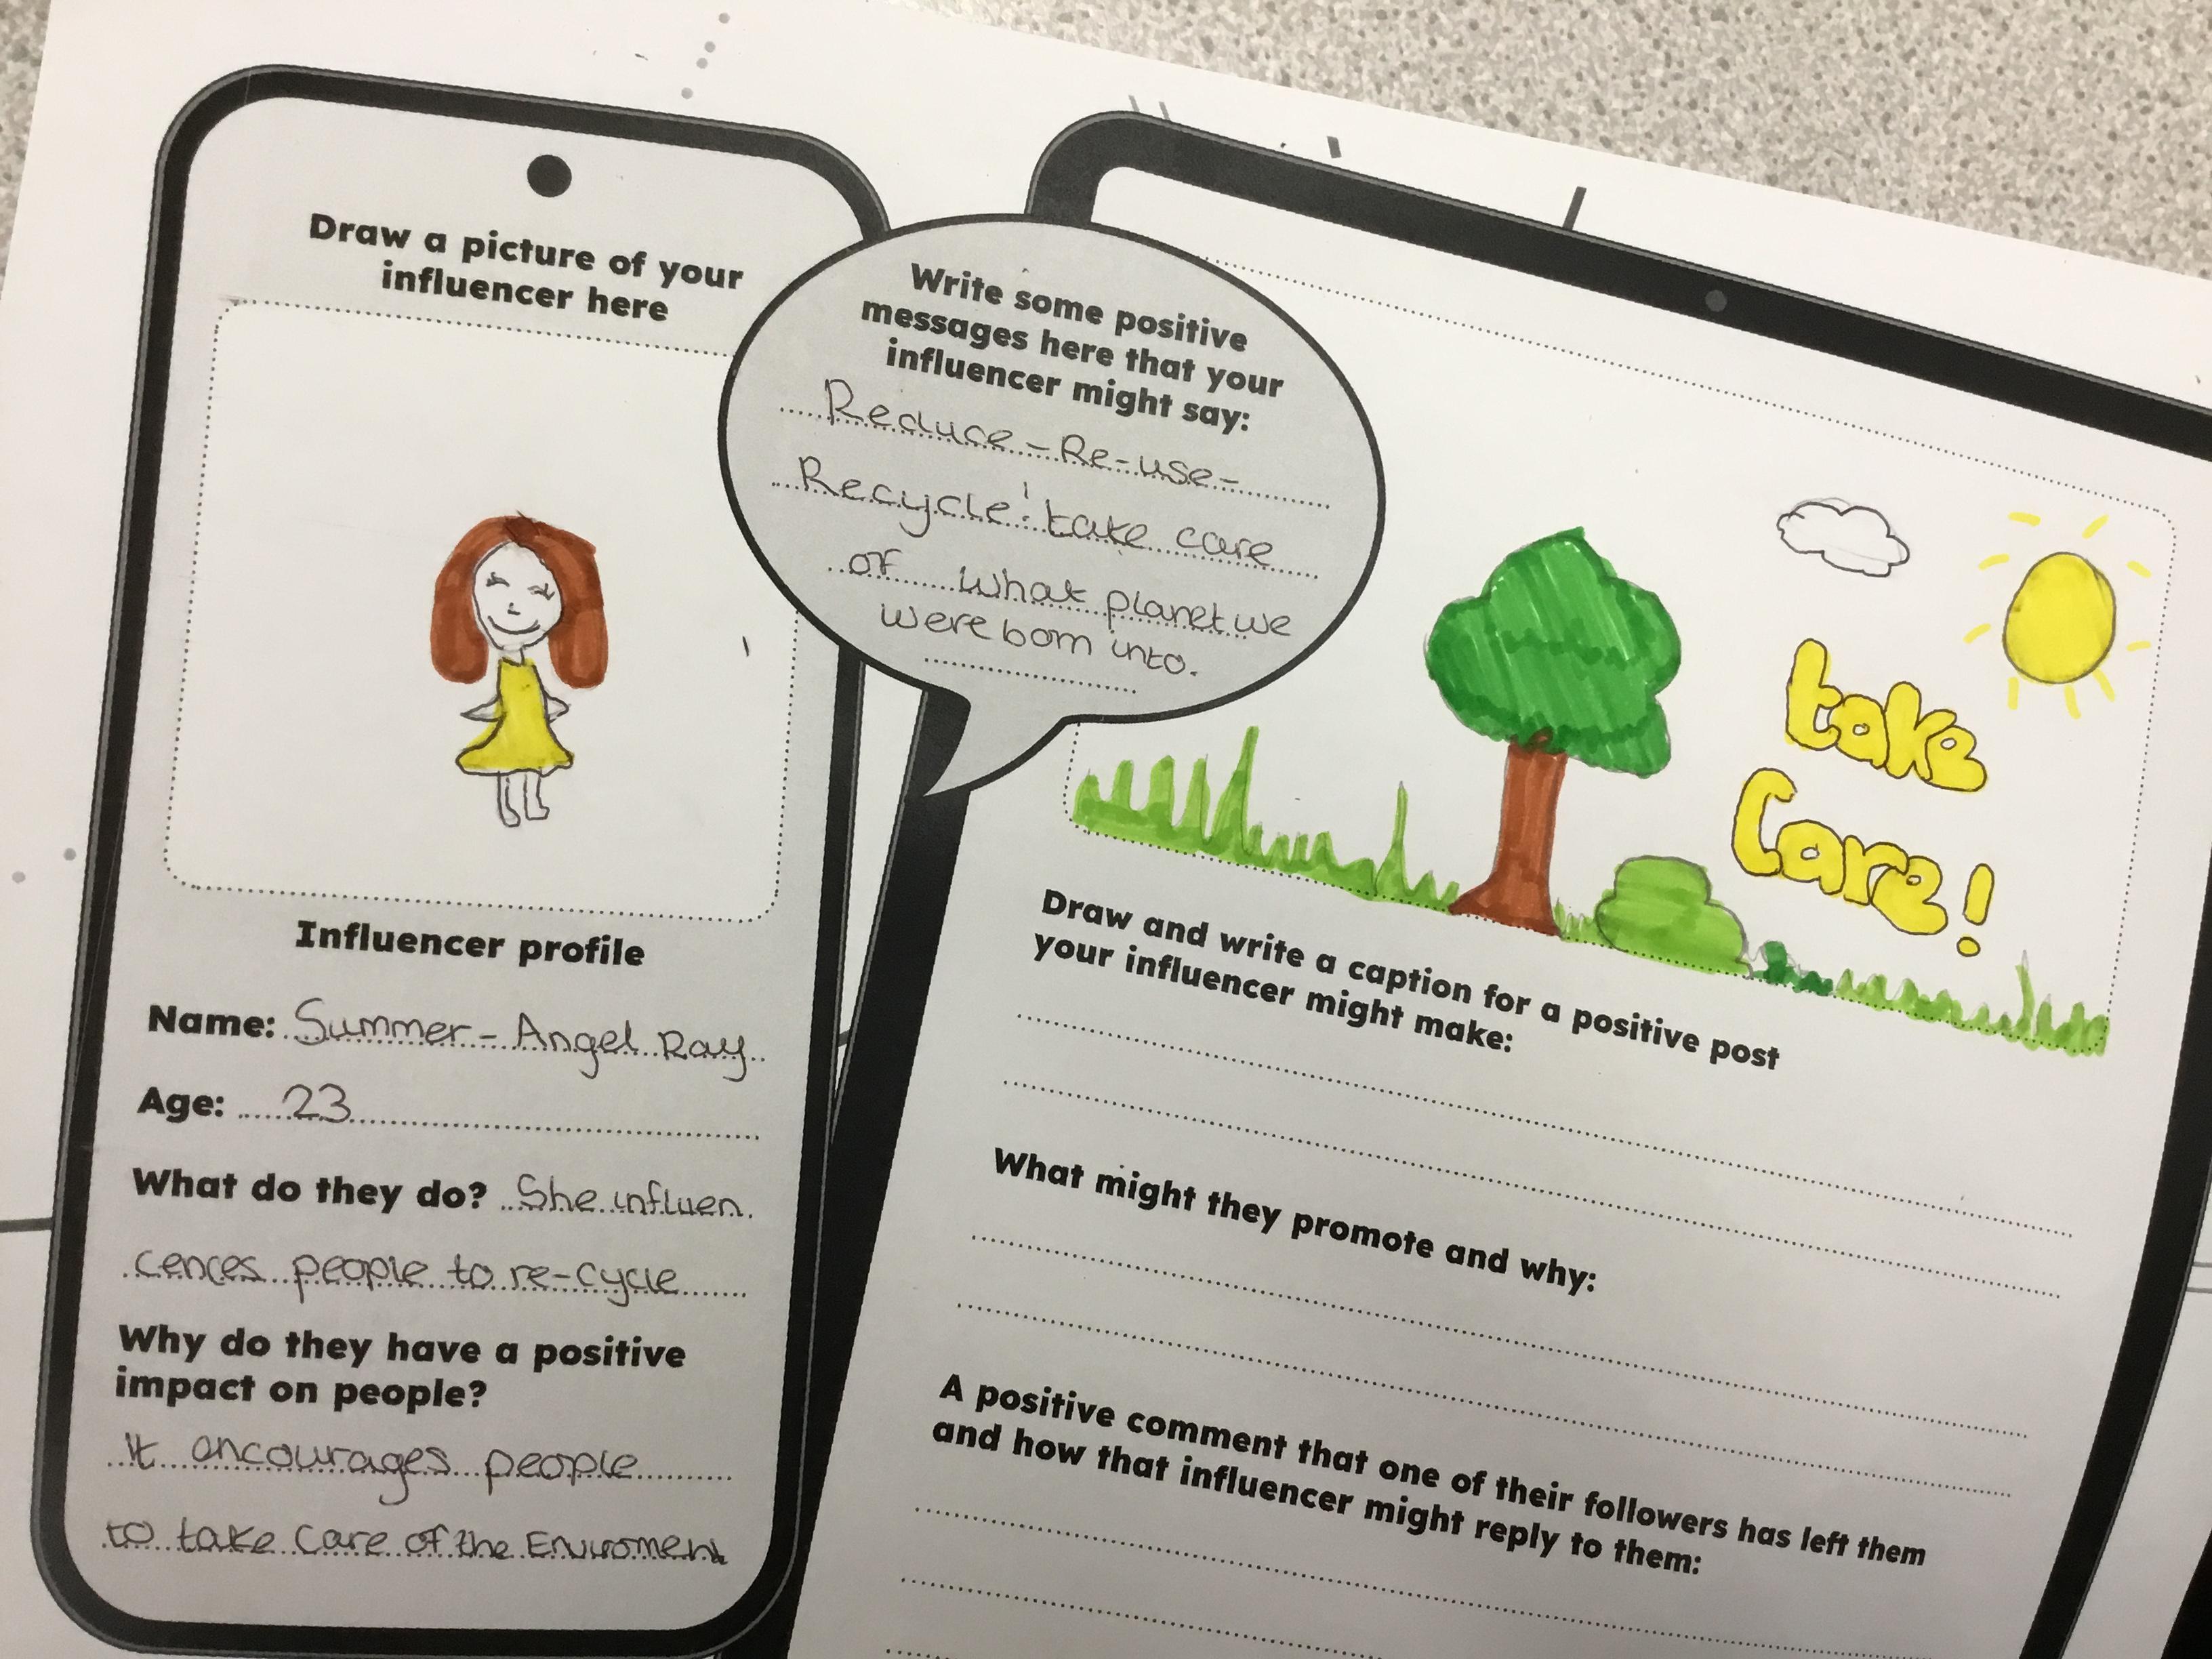 Draw a picture of your
influencer here
Influencer profile
Name: Summer - Angel Ray
Age: 23
What do they do? She influen
cences people to re-cycle
Why do they have a positive
impact on people?
It encourages people
to take Care of the Enviroment
Write some positive
messages here that your
influencer might say:
Reduce - Re-use -
Recycle! take care
of what planet we
were born into.
take
Care!
Draw and write a caption for a positive post
your influencer might make:
What might they promote and why:
A positive comment that one of their followers has left them
and how that influencer might reply to them: